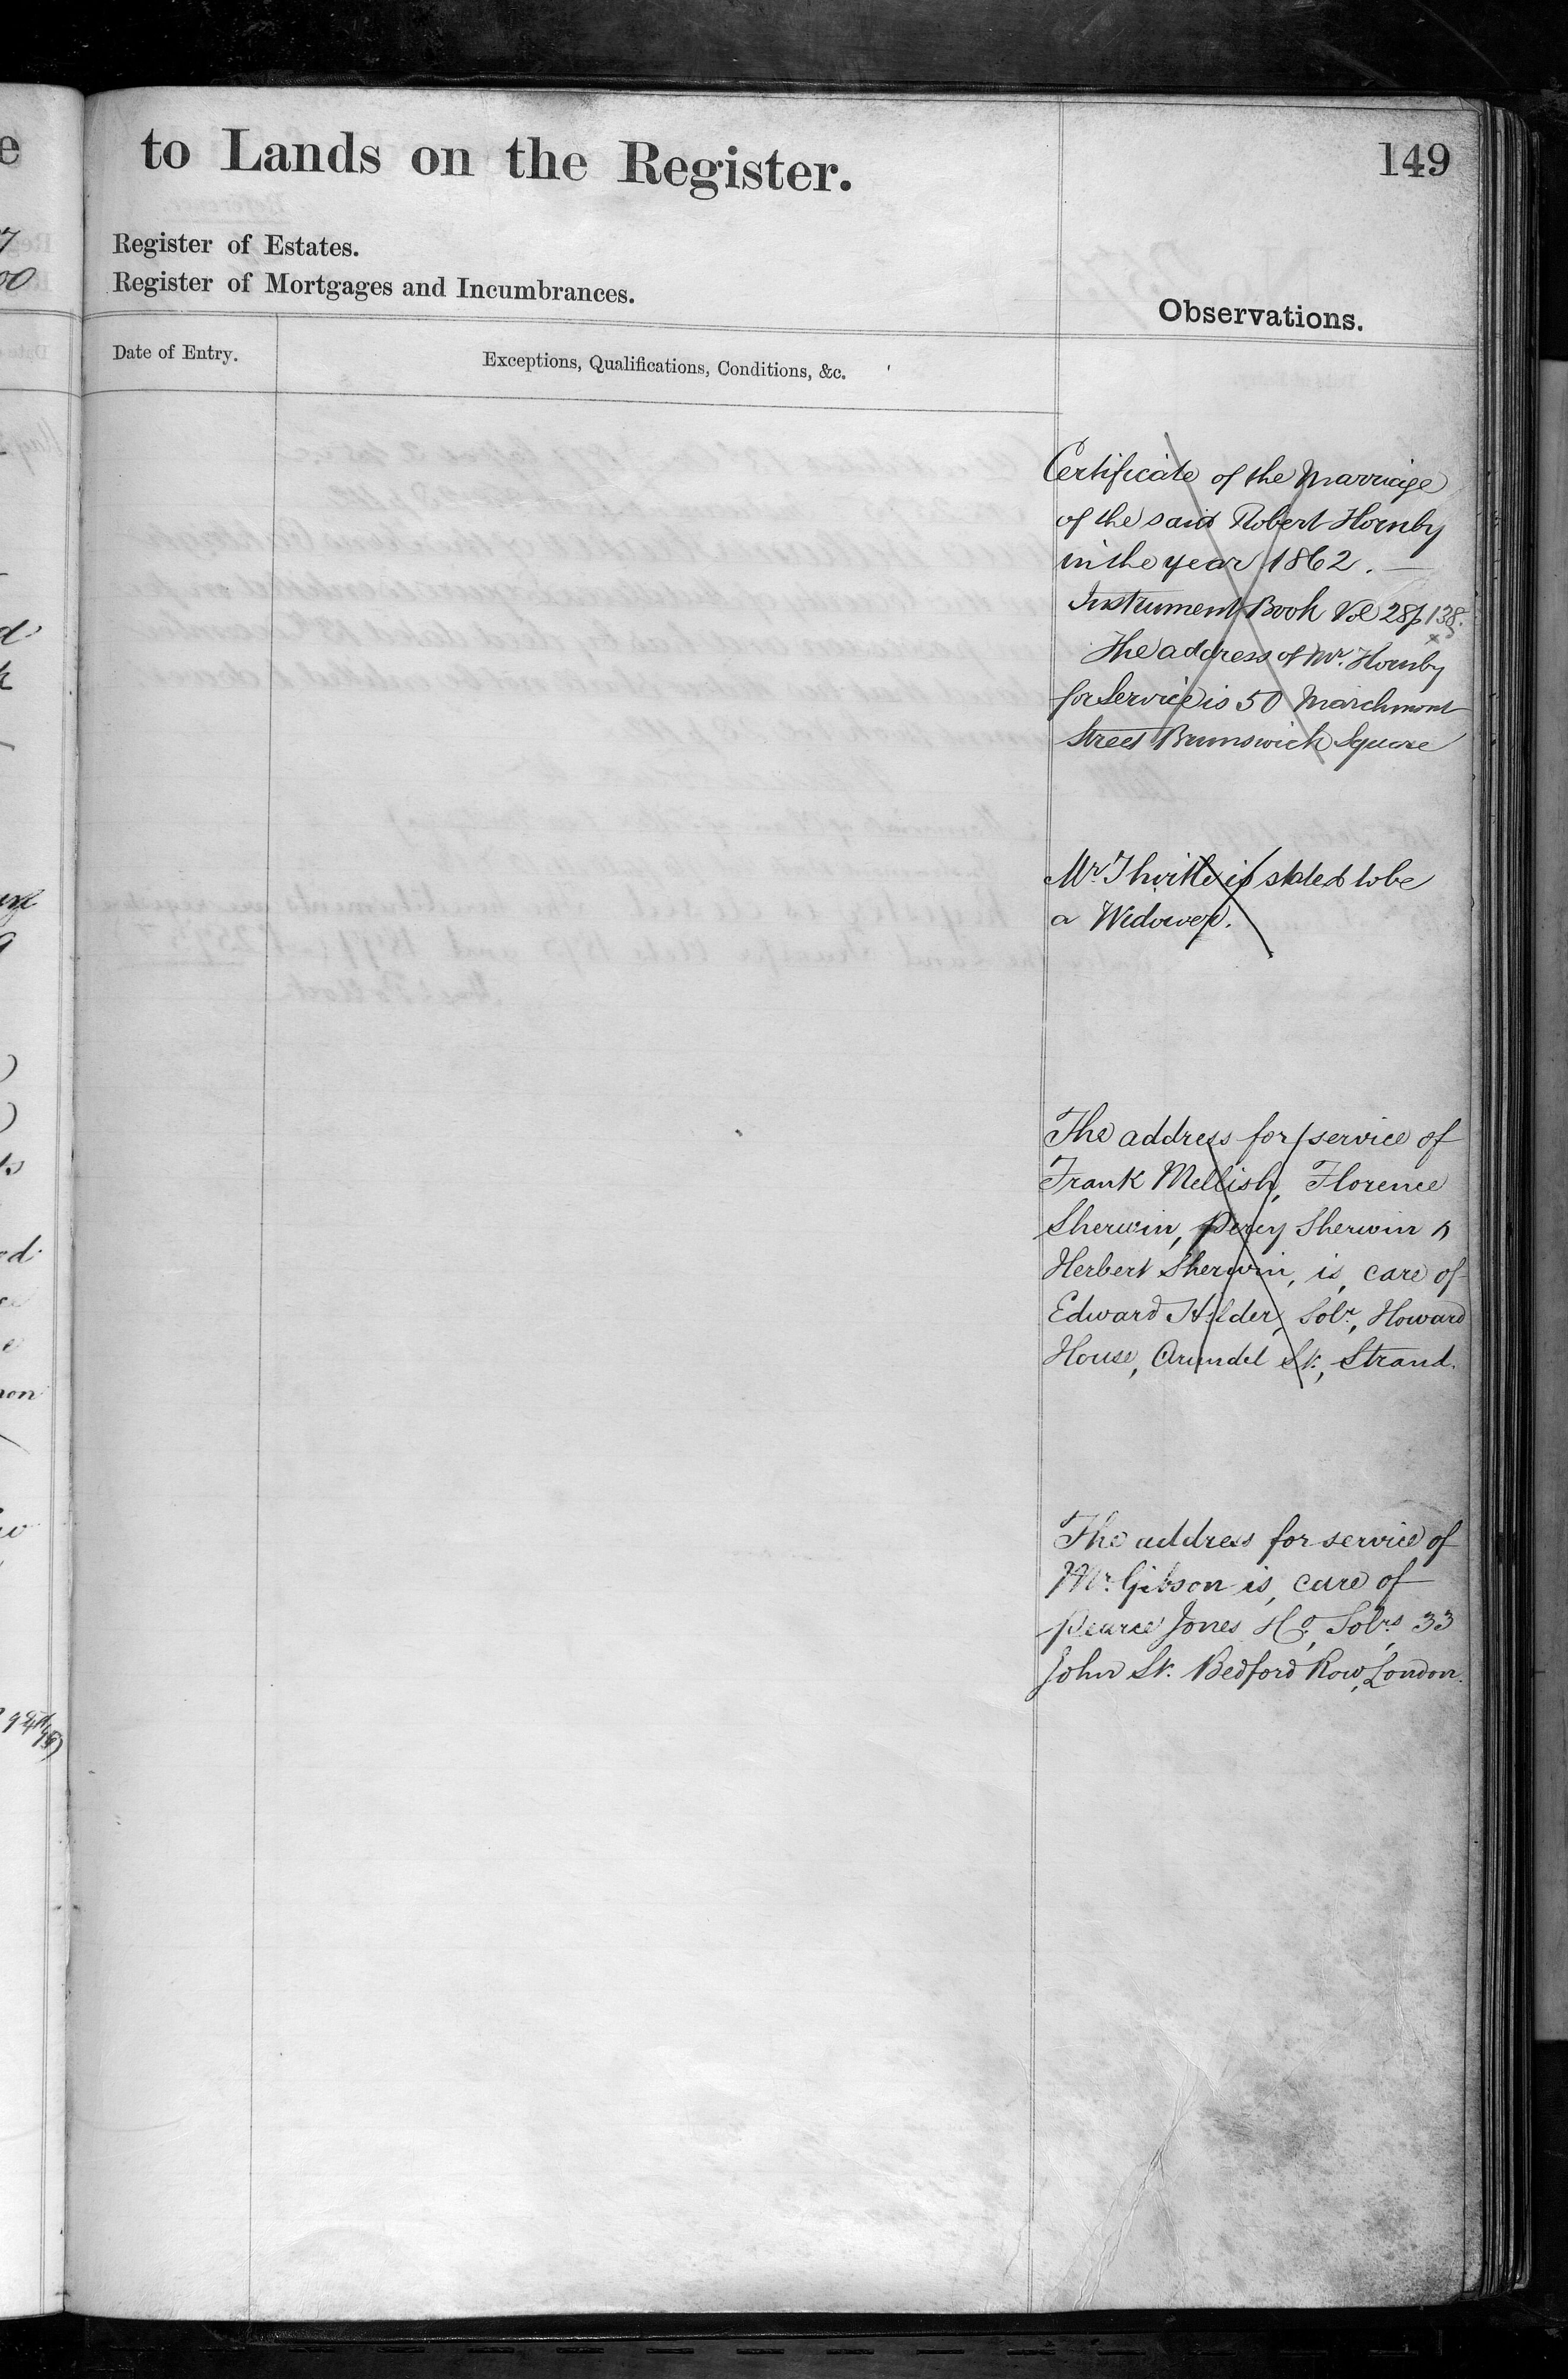 to Lands on the Register.
149
Register of Estates.
Register of Mortgages and Incumbrances.
Observations.
Date of Entry.
Exceptions, Qualifications, Conditions, &c.
Certificate of the Marriage
of the said Robert Hornby
in the year 1862. —
Instrument Book Vol 28 p 138.
The address of Mr. Hornby
for Service is 50 Marchmont
Street Brunswick Square
Mr. is stated to be
a Widower.
The address for service of
Frank Mellish, Florence
Sherwin, Percy Sherwin &
Herbert Sherwin, is, care of
Edward Hilder, Solr., Howard
House, Arundel St., Strand.
The address for service of
Mr. Gibson is, care of
Pearce Jones & Co., Solrs, 33
John St. Bedford Row, London.